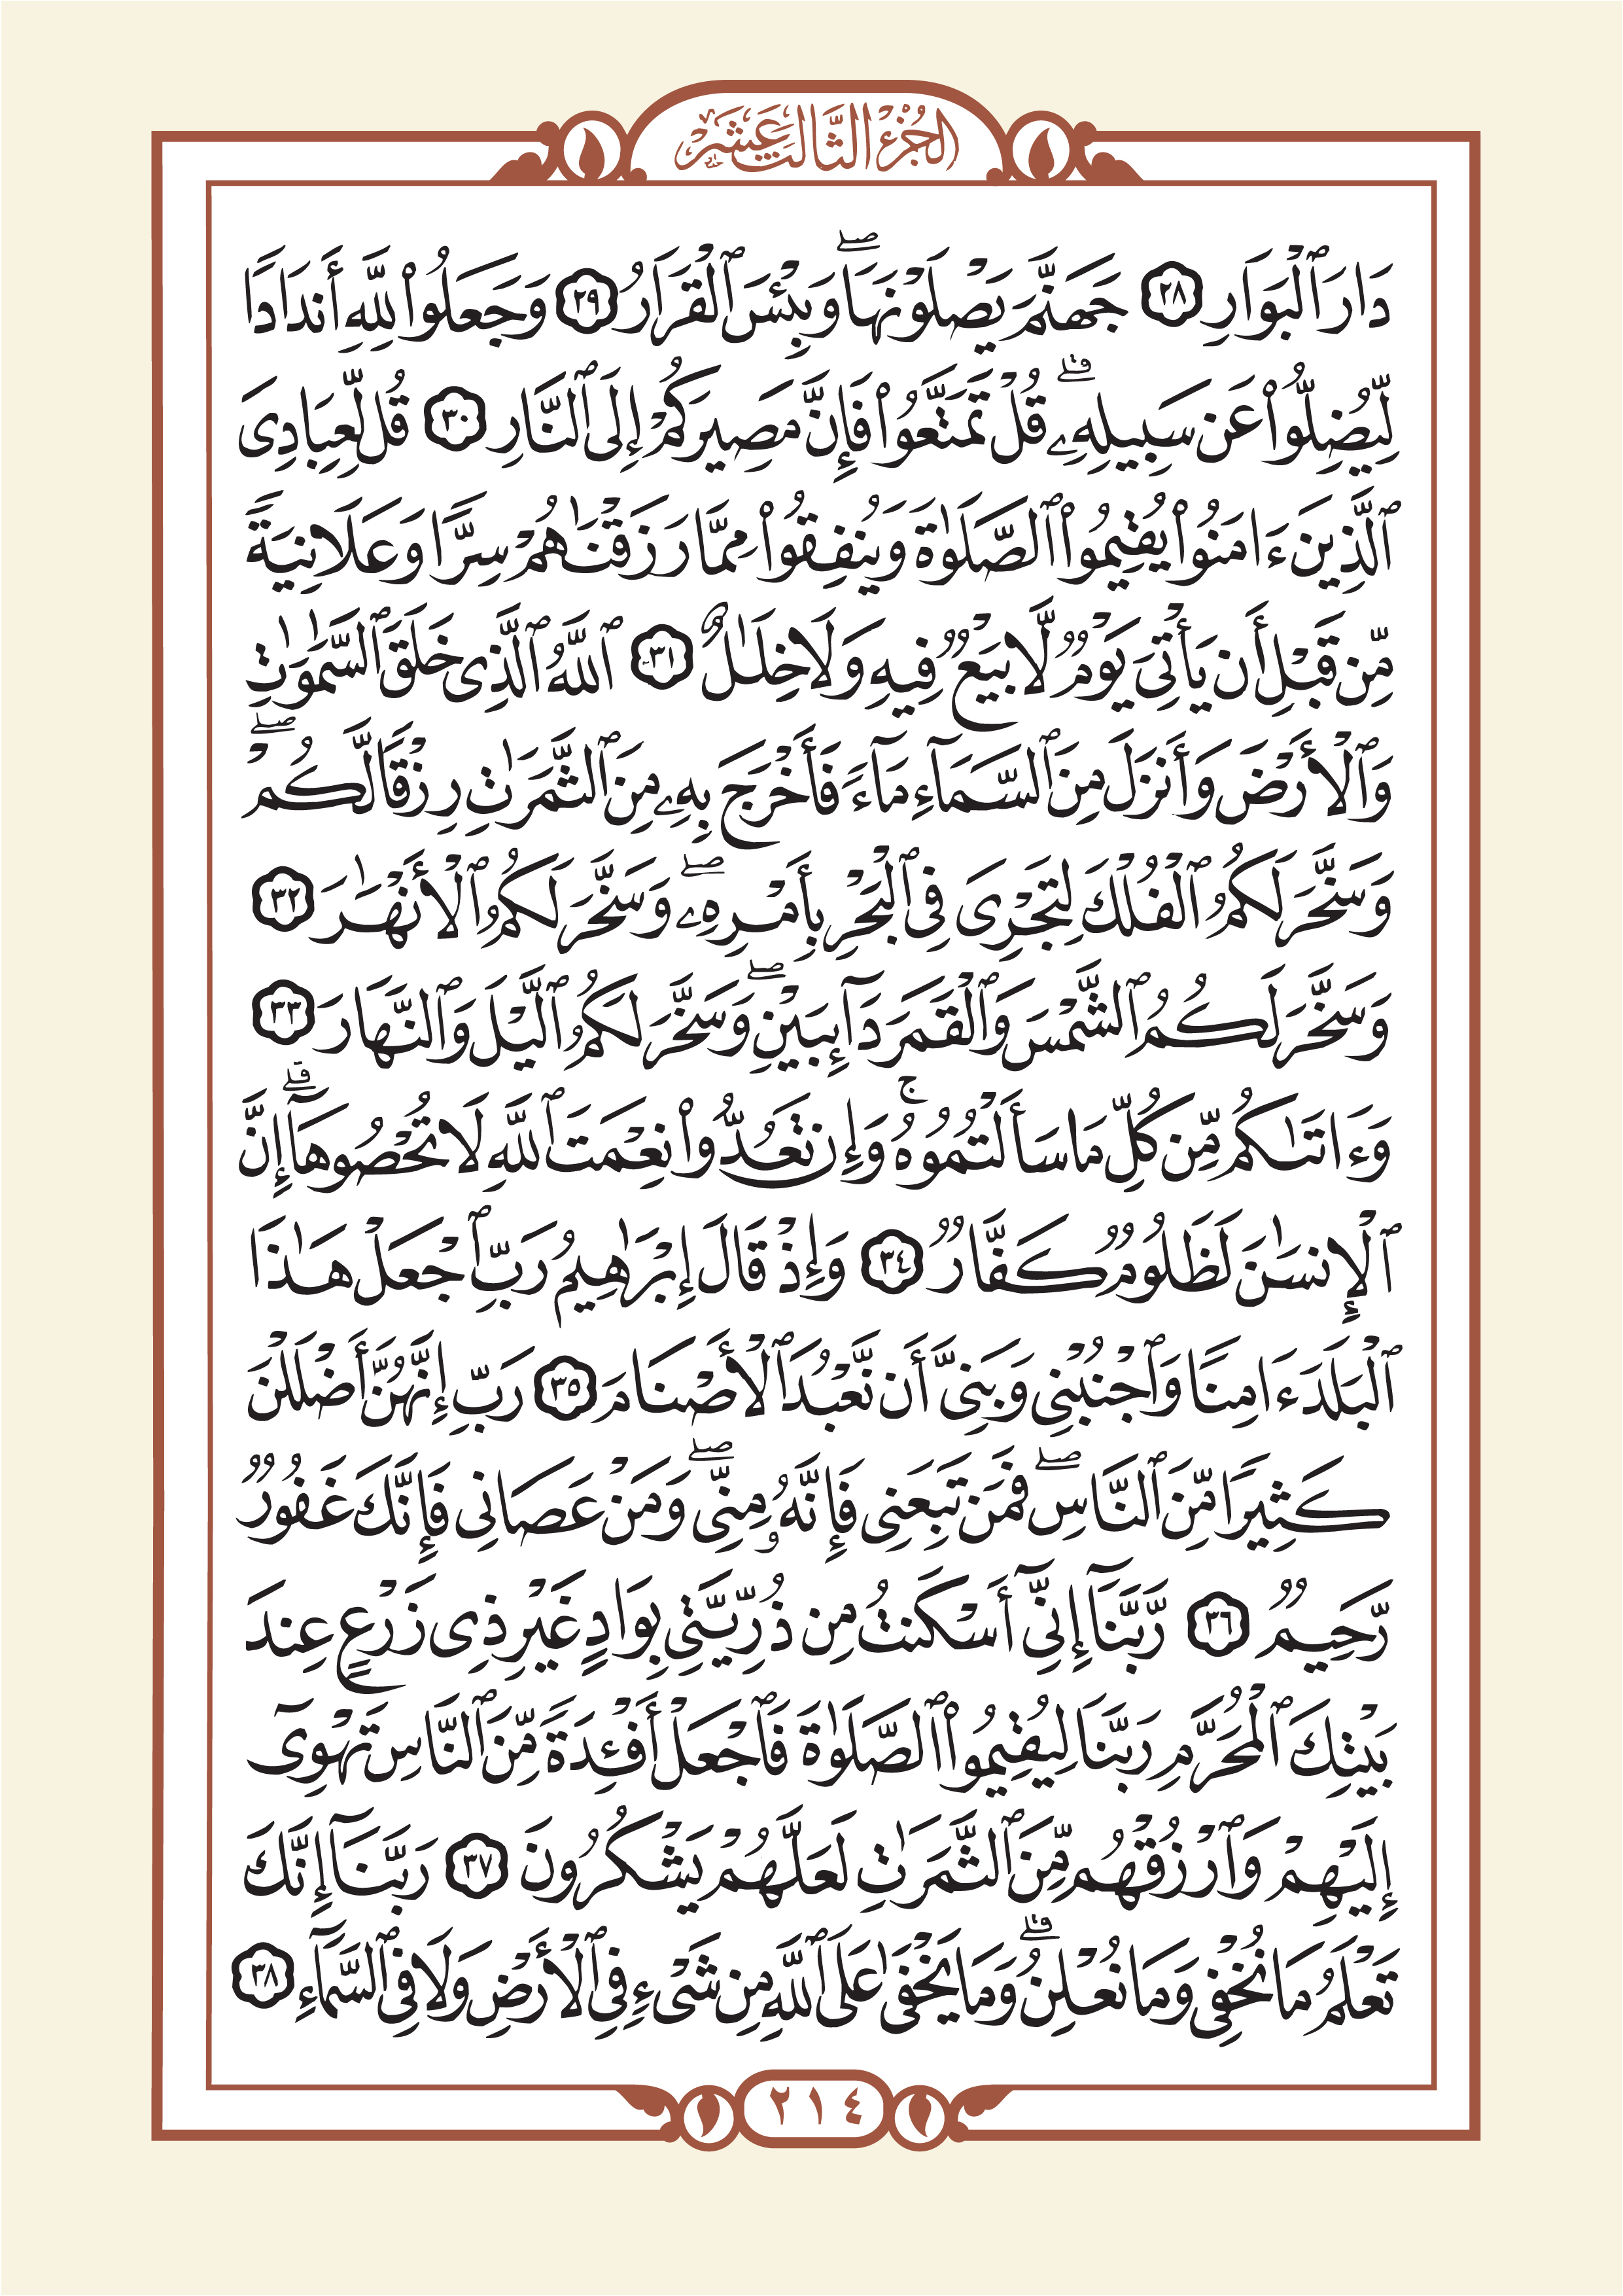 الجُزْءُ الثَّالِثَ عَشَرَ
دَارَ ٱلْبَوَارِ ٢٨ جَهَنَّمَ يَصْلَوْنَهَاۖ وَبِئْسَ ٱلْقَرَارُ ٢٩ وَجَعَلُوا۟ لِلَّهِ أَندَادًا
لِّيُضِلُّوا۟ عَن سَبِيلِهِۦۗ قُلْ تَمَتَّعُوا۟ فَإِنَّ مَصِيرَكُمْ إِلَى ٱلنَّارِ ٣٠ قُل لِّعِبَادِىَ
ٱلَّذِينَ ءَامَنُوا۟ يُقِيمُوا۟ ٱلصَّلَوٰةَ وَيُنفِقُوا۟ مِمَّا رَزَقْنَٰهُمْ سِرًّا وَعَلَانِيَةً
مِّن قَبْلِ أَن يَأْتِىَ يَوْمٌ لَّا بَيْعٌ فِيهِ وَلَا خِلَٰلٌ ٣١ ٱللَّهُ ٱلَّذِى خَلَقَ ٱلسَّمَٰوَٰتِ
وَٱلْأَرْضَ وَأَنزَلَ مِنَ ٱلسَّمَآءِ مَآءً فَأَخْرَجَ بِهِۦ مِنَ ٱلثَّمَرَٰتِ رِزْقًا لَّكُمْۖ
وَسَخَّرَ لَكُمُ ٱلْفُلْكَ لِتَجْرِىَ فِى ٱلْبَحْرِ بِأَمْرِهِۦۖ وَسَخَّرَ لَكُمُ ٱلْأَنْهَٰرَ ٣٢
وَسَخَّرَ لَكُمُ ٱلشَّمْسَ وَٱلْقَمَرَ دَآئِبَيْنِۖ وَسَخَّرَ لَكُمُ ٱلَّيْلَ وَٱلنَّهَارَ ٣٣
وَءَاتَىٰكُم مِّن كُلِّ مَا سَأَلْتُمُوهُۚ وَإِن تَعُدُّوا۟ نِعْمَتَ ٱللَّهِ لَا تُحْصُوهَآۗ إِنَّ
ٱلْإِنسَٰنَ لَظَلُومٌ كَفَّارٌ ٣٤ وَإِذْ قَالَ إِبْرَٰهِيمُ رَبِّ ٱجْعَلْ هَٰذَا
ٱلْبَلَدَ ءَامِنًا وَٱجْنُبْنِى وَبَنِىَّ أَن نَّعْبُدَ ٱلْأَصْنَامَ ٣٥ رَبِّ إِنَّهُنَّ أَضْلَلْنَ
كَثِيرًا مِّنَ ٱلنَّاسِۖ فَمَن تَبِعَنِى فَإِنَّهُۥ مِنِّىۖ وَمَنْ عَصَانِى فَإِنَّكَ غَفُورٌ
رَّحِيمٌ ٣٦ رَّبَّنَآ إِنِّىٓ أَسْكَنتُ مِن ذُرِّيَّتِى بِوَادٍ غَيْرِ ذِى زَرْعٍ عِندَ
بَيْتِكَ ٱلْمُحَرَّمِ رَبَّنَا لِيُقِيمُوا۟ ٱلصَّلَوٰةَ فَٱجْعَلْ أَفْـِٔدَةً مِّنَ ٱلنَّاسِ تَهْوِىٓ
إِلَيْهِمْ وَٱرْزُقْهُم مِّنَ ٱلثَّمَرَٰتِ لَعَلَّهُمْ يَشْكُرُونَ ٣٧ رَبَّنَآ إِنَّكَ
تَعْلَمُ مَا نُخْفِى وَمَا نُعْلِنُۗ وَمَا يَخْفَىٰ عَلَى ٱللَّهِ مِن شَىْءٍ فِى ٱلْأَرْضِ وَلَا فِى ٱلسَّمَآءِ ٣٨
٢١٤